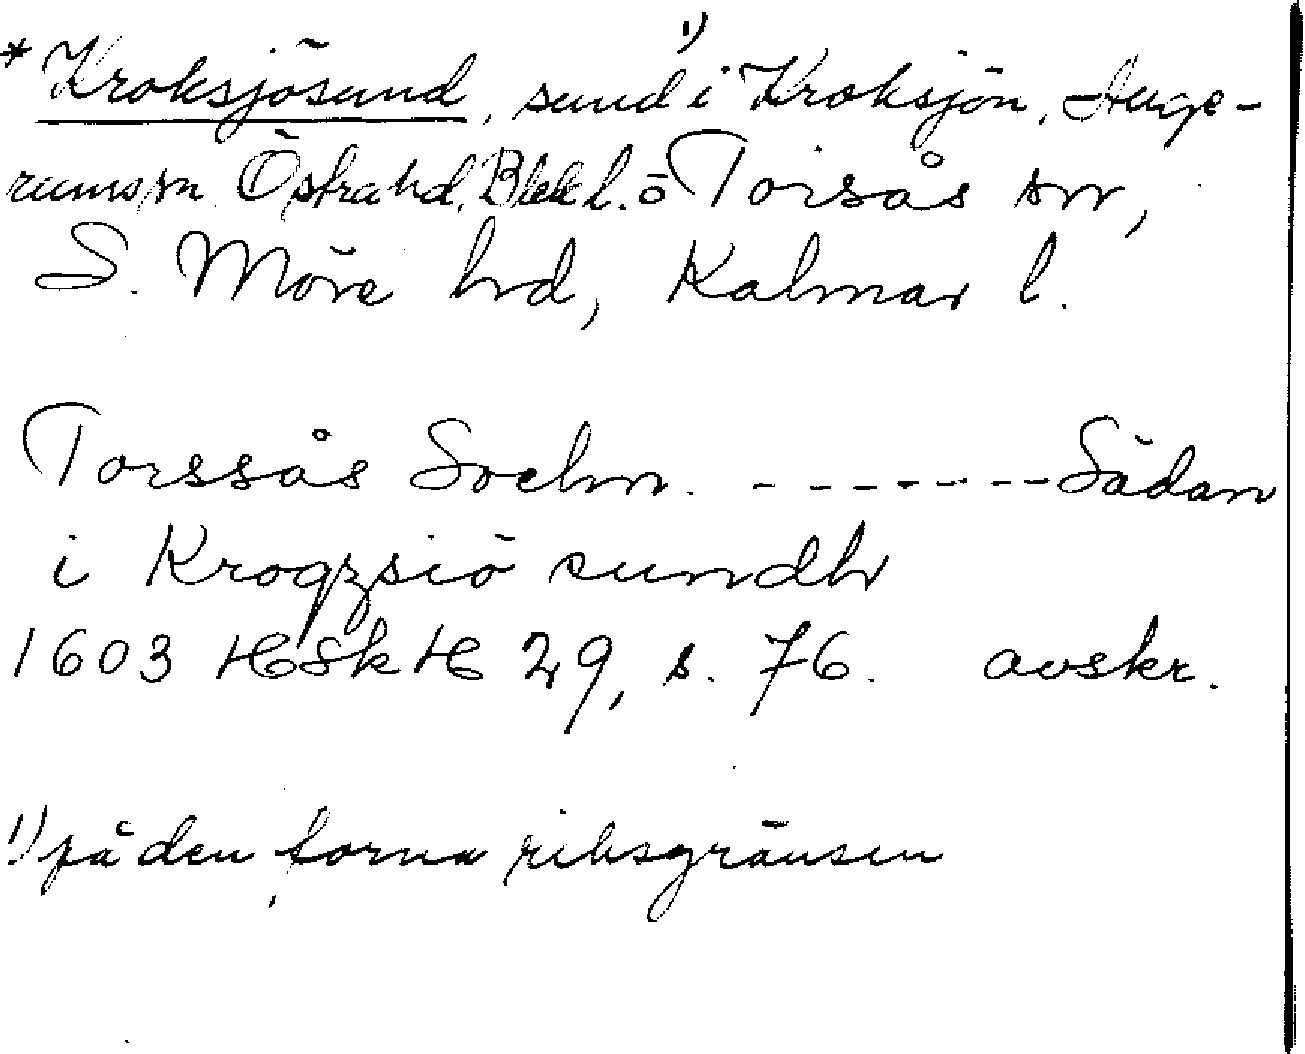 * Kroksjösund, sund ¹⁾ i Kroksjön, Auge-
rums sn Östra hd, Blek l. o Torsås sn,
S. Möre hd, Kalmar l.
Torssås Sochn. - - - - - - - Sådan
i Krogzsiö sundh
1603 HSkH 29, s. 76. avskr.
1) på den forna riksgränsen